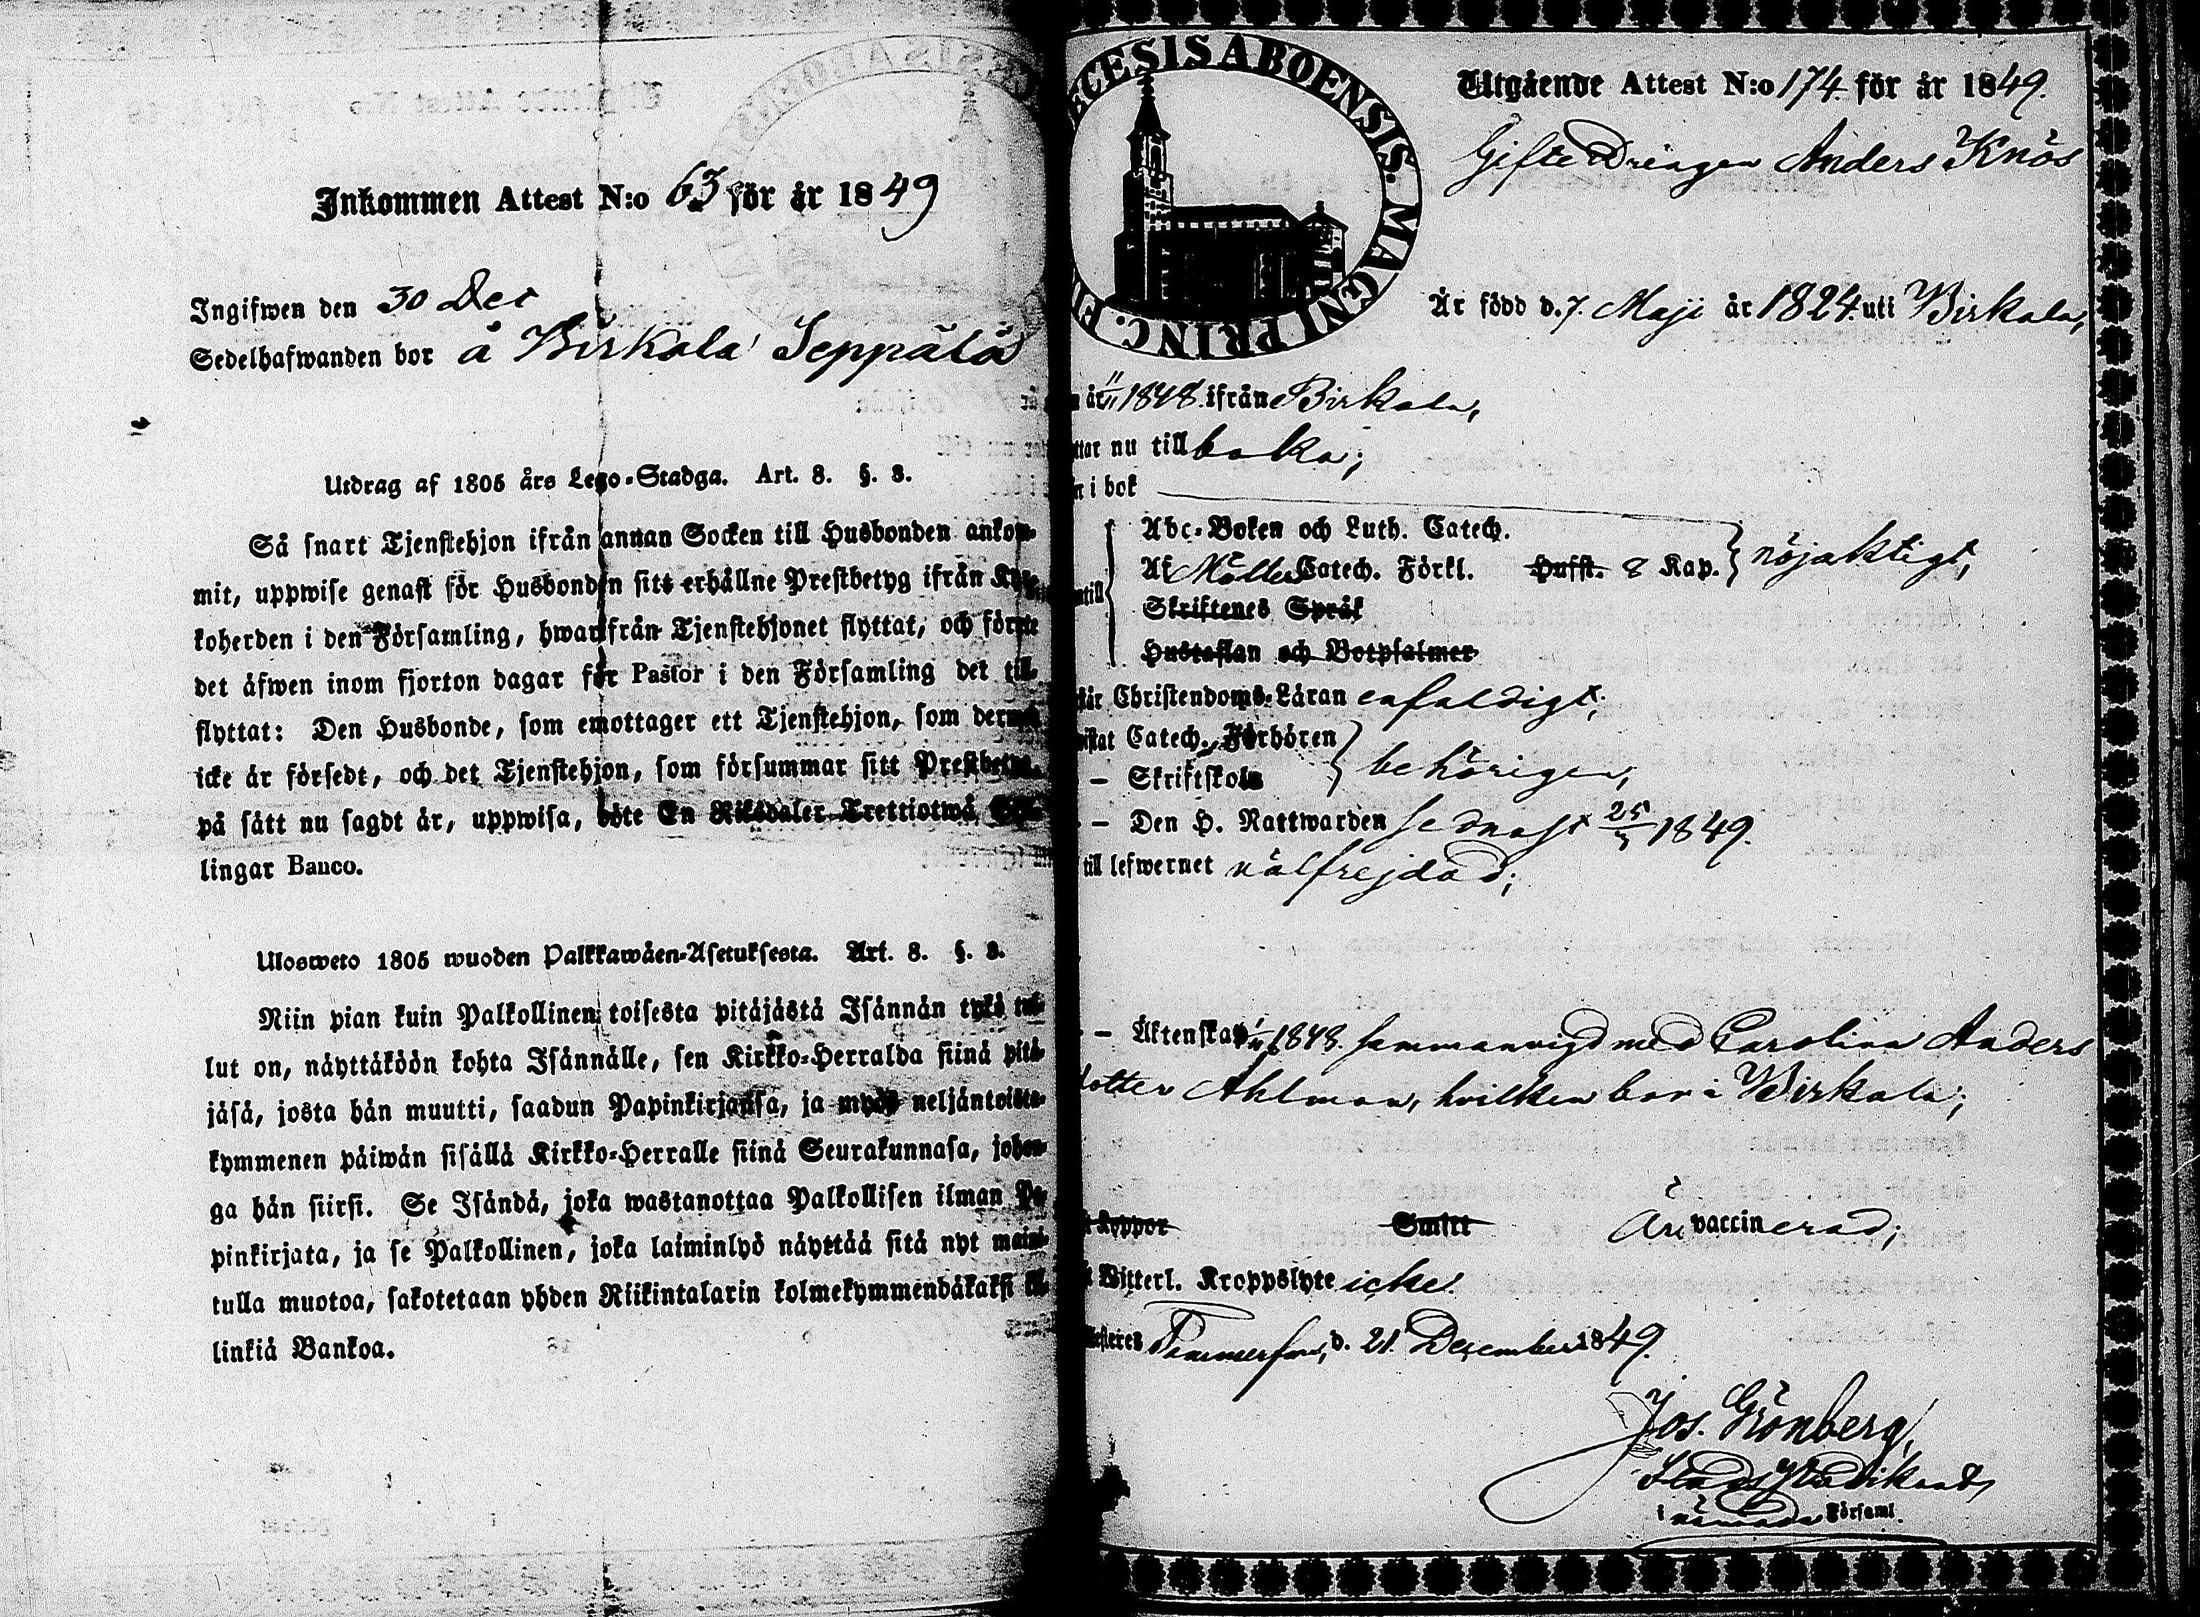 Inkommen Attest N:o 63 för år 1849
Ingifwen den 30 Dec
Sedelhafwanden bor å Birkala Seppälä
Utdrag af 1805 års Lego-Stadga. Art. 8. §. 8.
Så snart Tjenstehjon ifrån annan Socken till Husbonden ankom-
mit, uppwise genast för Husbonden sitt erhållne Prestbetyg ifrån Kyr-
koherden i den Församling, hwarifrån Tjenstehjonet flyttat, och förete
det äfwen inom fjorton dagar för Pastor i den Församling det till-
flyttat: Den Husbonde, som emottager ett Tjenstehjon, som dermed
icke är försedt, och det Tjenstehjon, som försummar sitt Prestbetyg,
på sätt nu sagdt är, uppwisa, böte En Riksdaler Trettiotwå Skil-
lingar Banco.
Ulosweto 1805 wuoden Palkkawäen-Asetuksesta. Art. 8. §. 8.
Niin pian kuin Palkollinen toisesta pitäjästä Isännän tykö tul-
lut on, näyttäköön kohta Isännälle, sen Kirkko-Herralda siinä pitä-
jäsä, josta hän muutti, saadun Papinkirjansa, ja myös neljäntoista-
kymmenen päiwän sisällä Kirkko-Herralle siinä Seurakunnasa, johon-
ga hän siirsi. Se Isändä, joka wastanottaa Palkollisen ilman Pa-
pinkirjata, ja se Palkollinen, joka laiminlyö näyttää sitä nyt maini-
tulla muotoa, sakotetaan yhden Riikintalarin kolmekymmendäkaksi kil-
linkiä Bankoa.
CESIS ABOENSIS. MAGNI PRINC. FI
Utgående Attest N:o 174. för år 1849.
Gifte Drängen Anders Knös
Är född d. 7. Maji år 1824. uti Birkala,
år 1848. ifrån Birkala,
ttar nu till baka;
n i bok
Abc-Boken och Luth. Catech.
Af Möllers Catech. Förkl. Hufst. 8 Kap. nöjaktigt,
ntill
Skriftenes Språk
Hustaflan och Botpsalmer
tår Christendoms-Läran enfaldigt;
istat Catech. Förhören
– Skriftskola behörigen,
– Den H. Nattwarden sednast 25/3 1849.
till lefwernet välfrejdad;
– Äktenskap 1848. sammanvigd med Carolina Anders
dotter Ahlman, hvilken bor i Birkala;
koppor Smitt Är vaccinerad;
t Witterl. Kroppslyte icke.
testeres Tammerfors, d. 21. December 1849.
Jos. Grönberg,
Stads Predikant
i nämnda Församl.